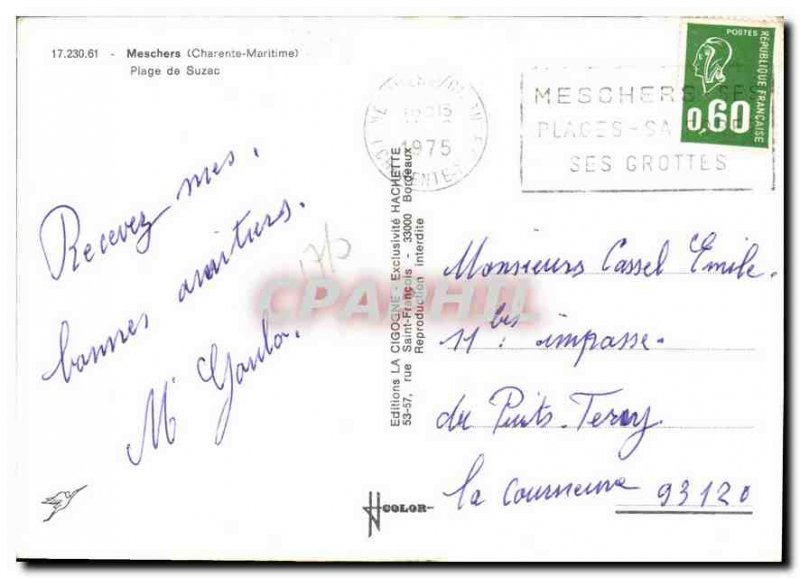 17.230.61 - Meschers (Charente-Maritime)
Plage de Suzac
Recevez mes.
bonnes amitiers.
Mr
1975
MESCHERS SES
PLAGES-SA
SES GROTTES
POSTES
RÉPUBLIQUE FRANÇAISE
0,60
Editions LA CIGOGNE - Exclusivité HACHETTE
53-57, rue Saint-François - 33000 Bordeaux
Reproduction interdite
CPAPHIL
Monsieurs Cassel Emile.
11 bis impasse.
du Puits-
la Courneuve 93120
COLOR